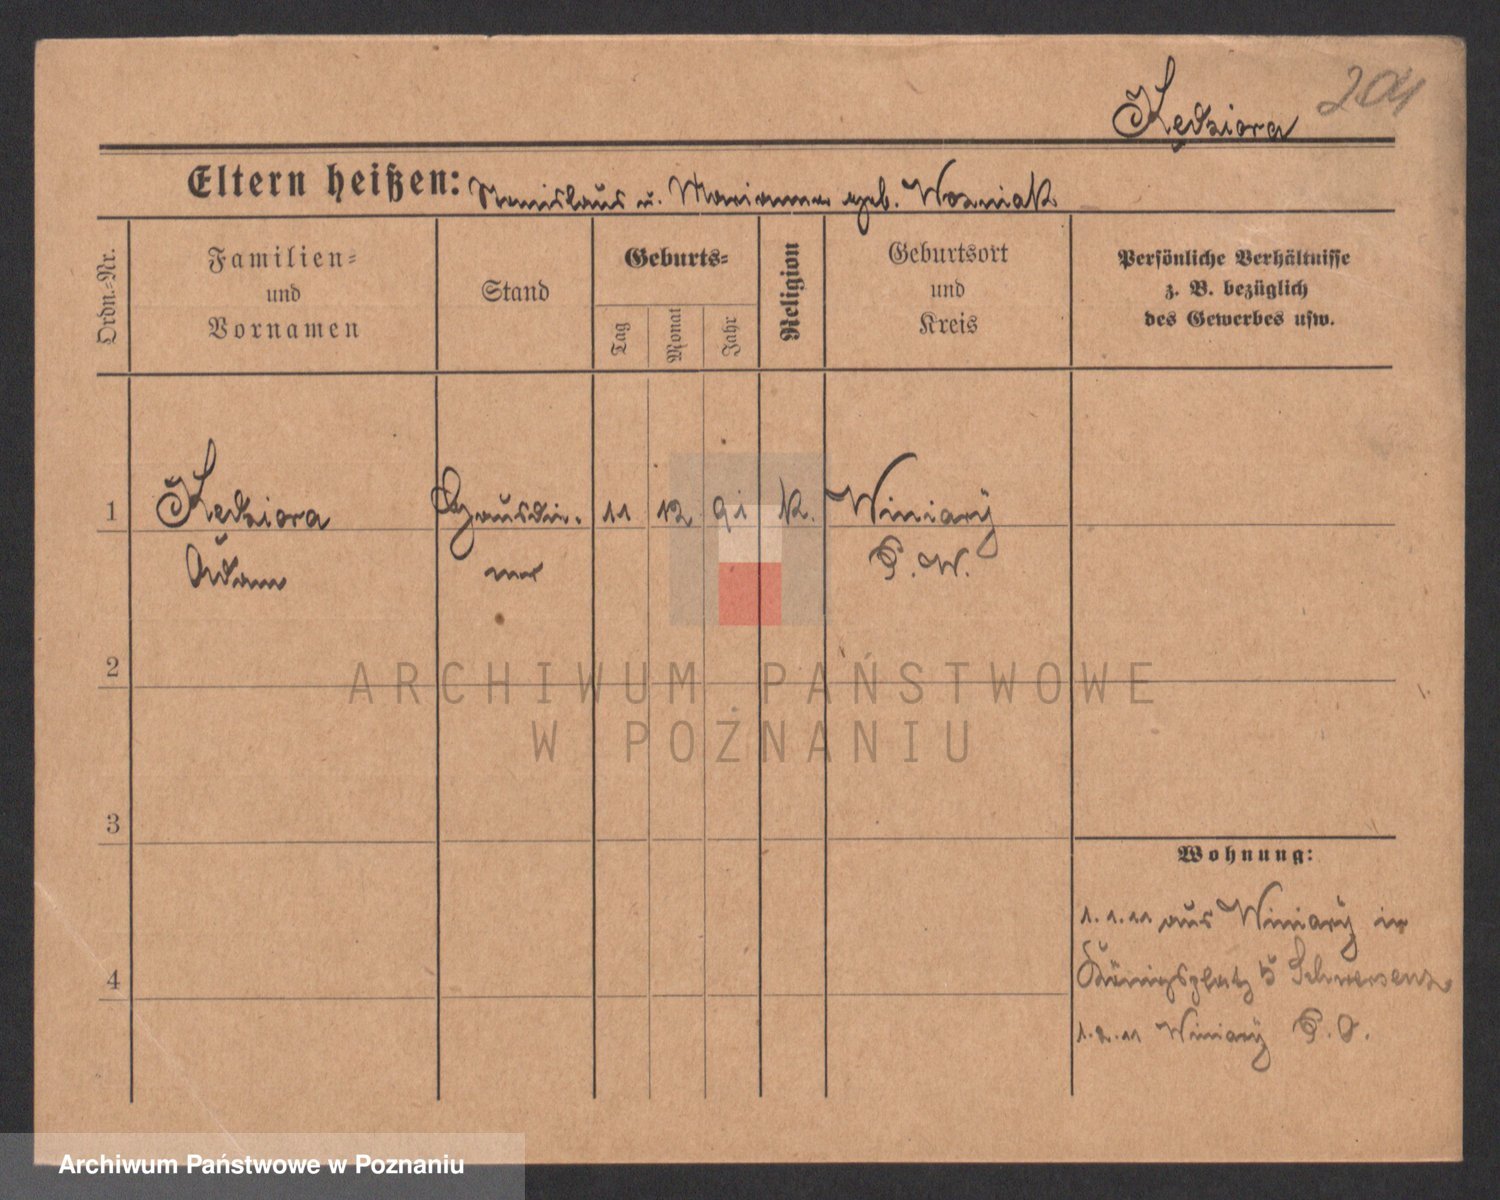 Kędziora 204
Eltern heißen: Stanislaus u. Marianna geb. Wozniak
Ordn.-Nr.
Familien-
und
Vornamen
Stand
Geburts-
Tag
Monat
Jahr
Religion
Geburtsort
und
Kreis
Persönliche Verhältnisse
z. B. bezüglich
des Gewerbes usw.
1 Kędziora Hausdie- 11 12 91 K. Winiary
Adam ner P. W.
2
ARCHIWUM PAŃSTWOWE
W POZNANIU
3
Wohnung:
1.1.11 aus Winiary in
Königsplatz 5 Schwersenz
4
1.2.11 Winiary P. O.
Archiwum Państwowe w Poznaniu